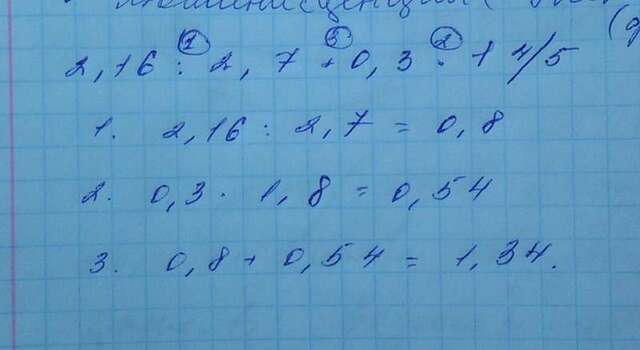 1 3 2
2,16 : 2,7 + 0,3 · 1 4/5
1. 2,16 : 2,7 = 0,8
2. 0,3 · 1,8 = 0,54
3. 0,8 + 0,54 = 1,34.